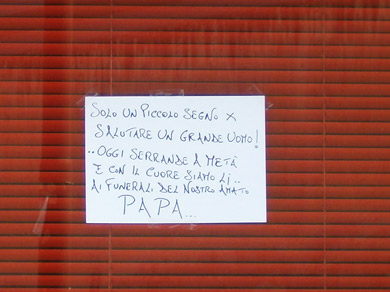 SOLO UN PICCOLO SEGNO X
SALUTARE UN GRANDE UOMO!
..OGGI SERRANDE A METÀ
E CON IL CUORE SIAMO LÌ..
AI FUNERALI DEL NOSTRO AMATO
PAPA...